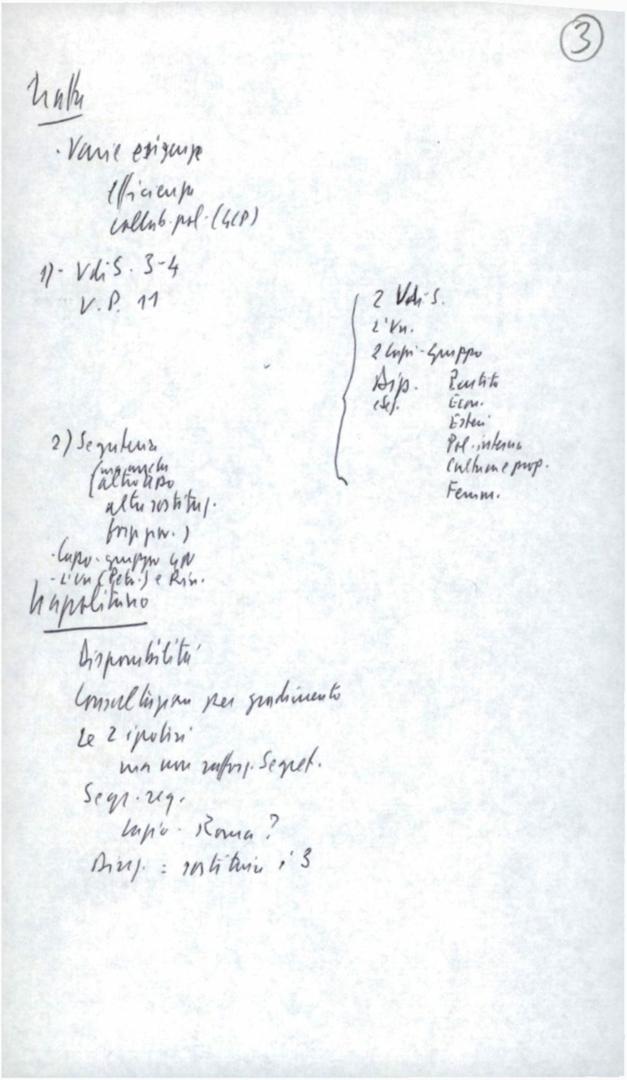 3
Natta
- Varie esigenze
efficienza
collab. pol. (GCP)
1) - V di S. 3-4
U.P. 11
2 V di S.
L'Un.
2 Capi-gruppo
Dip. Partito
Econ.
Esteri
Pol. interna
Cultura e prop.
Femm.
2) Segreteria
altro tipo
altri sostituz.
- Capo-gruppo
- L'Un (Petr.) e Rin.
Napolitano
Disponibilità
Consultazioni per gradimento
Le 2 ipotesi
ma non rafforz. Segret.
Segr. reg.
Lazio - Roma?
Direz. = sostituire i 3